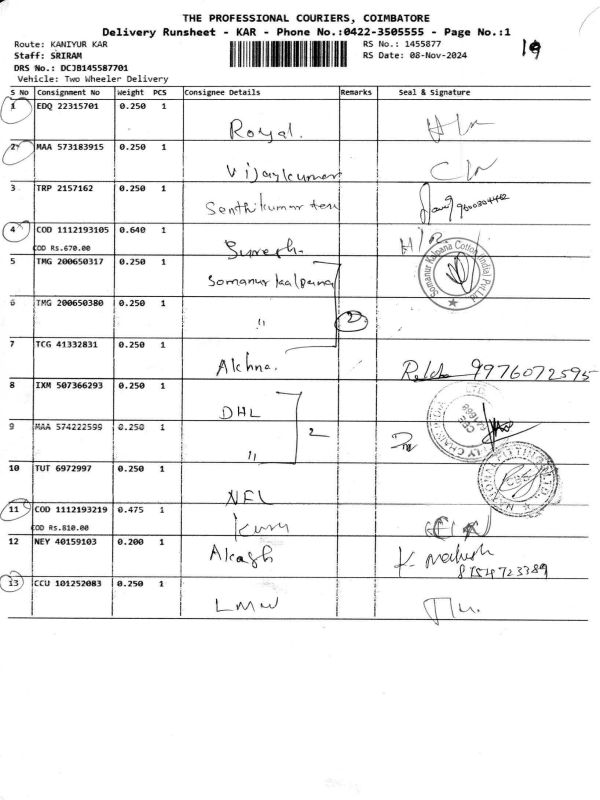 THE PROFESSIONAL COURIERS, COIMBATORE
Delivery Runsheet - KAR - Phone No.:0422-3505555 - Page No.:1
Route: KANIYUR KAR
RS No.: 1455877
19
Staff: SRIRAM
RS Date: 08-Nov-2024
DRS No.: DCJB145587701
Vehicle: Two Wheeler Delivery
S No Consignment No Weight PCS Consignee Details Remarks Seal & Signature
1 EDQ 22315701 0.250 1
Royal.
2 MAA 573183915 0.250 1
Vijaykumar
3 TRP 2157162 0.250 1
Senthilkumar
4 COD 1112193105 0.640 1
COD Rs.670.00
Suresh.
5 TMG 200650317 0.250 1 Somanur
Somanur Kalpana Cotton (India) Pvt Ltd
6 TMG 200650380 0.250 1
"
2
7 TCG 41332831 0.250 1
9976072595
8 IXM 507366293 0.250 1
DHL
9 MAA 574222599 0.250 1
"
2
10 TUT 6972997 0.250 1
11 COD 1112193219 0.475 1
COD Rs.810.00
12 NEY 40159103 0.200 1 Akash
K. Mahesh
13 CCU 101252083 0.250 1
LMW